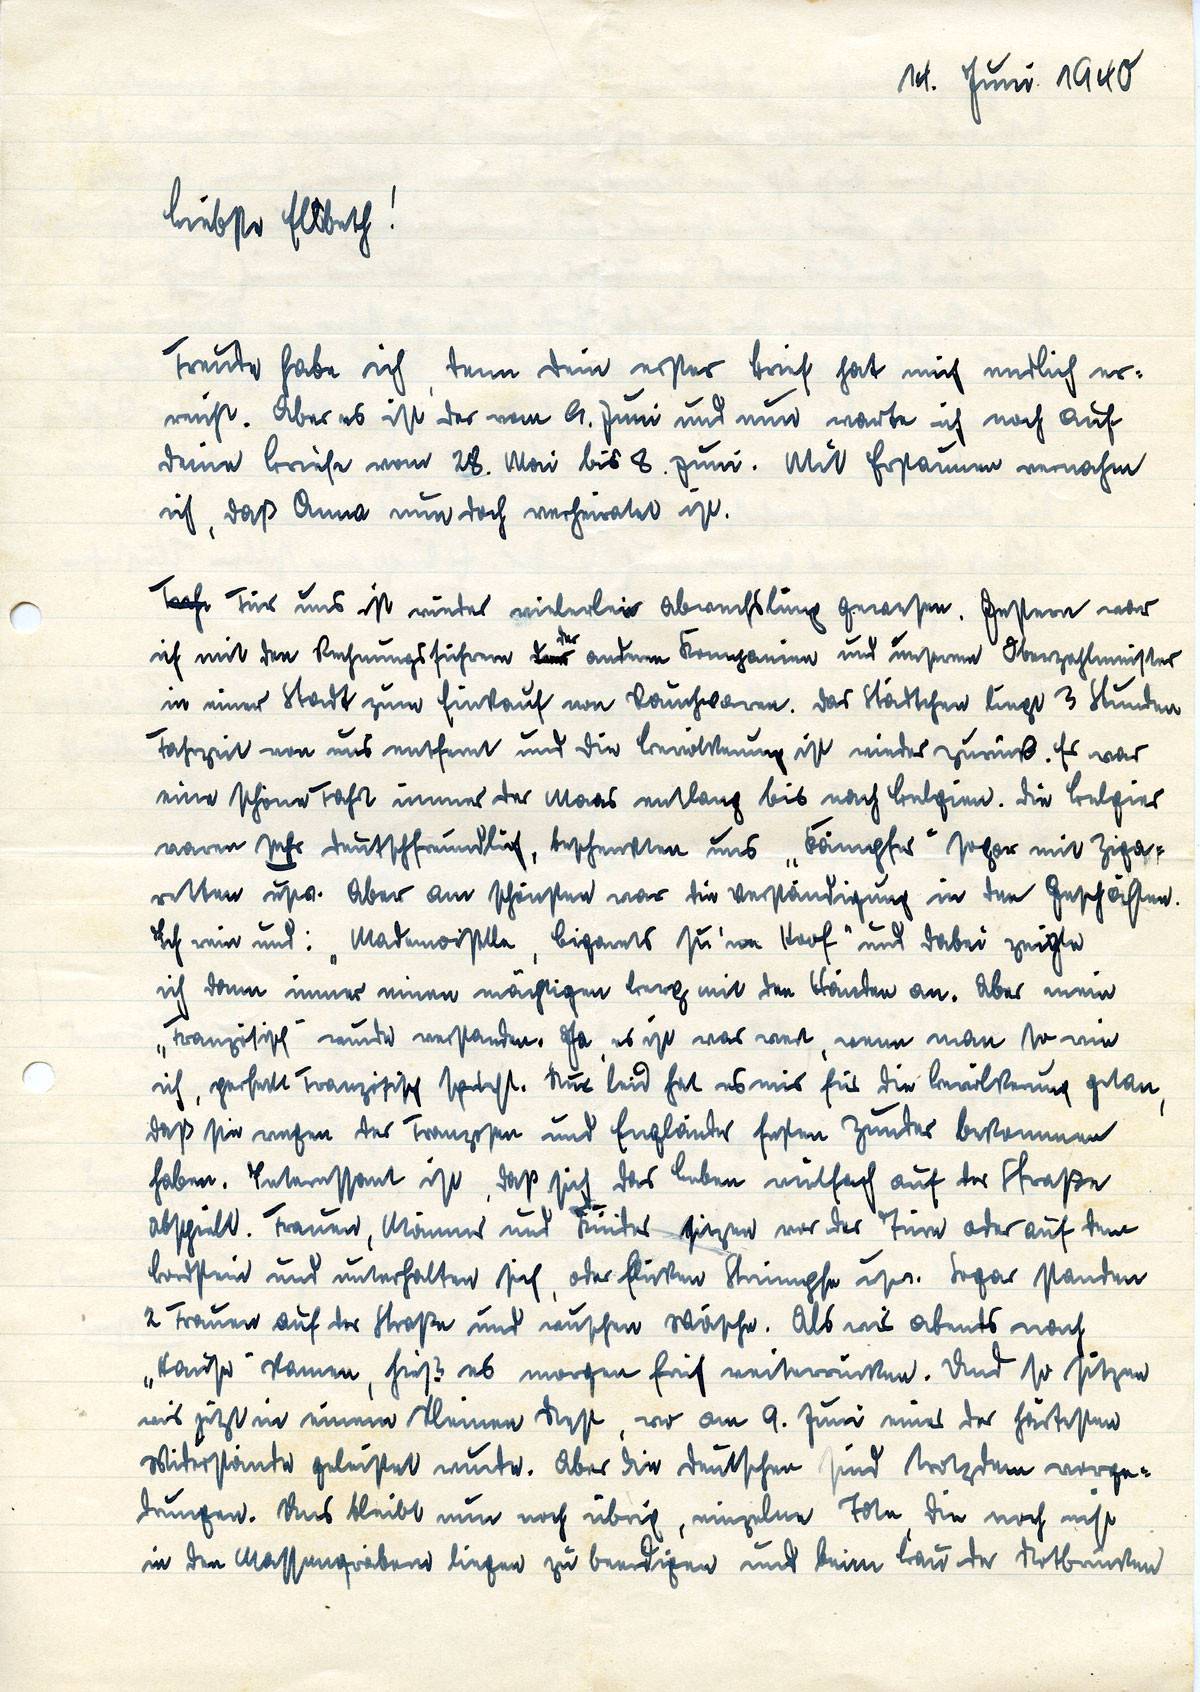 14. Juni 1940
Liebste Elsbeth!
Freude habe ich, denn dein erster Brief hat mich endlich er=
reicht. Aber es ist der vom 9. Juni und nun warte ich noch auf
deine Briefe vom 28. Mai bis 8. Juni. Mit Erstaunen vernahm
ich, daß Anna nun doch verheiratet ist.
Für uns ist wieder vielerlei Abwechslung gewesen. Gestern war
ich mit den Rechnungsführern der anderen Kompanien und unserem Oberzahlmeister
in einer Stadt zum Einkauf von Rauchwaren. Das Städtchen liegt 3 Stunden
Fahrzeit von uns entfernt und die Bevölkerung ist wieder zurück. Es war
eine schöne Fahrt immer der Maas entlang bis nach Belgien. Die Belgier
waren sehr deutschfreundlich, beschenkten uns „Kämpfer" sogar mit Ziga=
retten usw. Aber am schönsten war die Verständigung in den Geschäften.
Ich rein und: „Mademoiselle, Cigarets su'ne Hoof" und dabei zeigte
ich dann immer einen mächtigen Berg mit den Händen an. Aber mein
„Französisch" wurde verstanden. Ja, es ist was wert, wenn man so wie
ich, perfekt Französisch spricht. Nur leid hat es mir für die Bevölkerung getan,
daß sie wegen der Franzosen und Engländer festen Zunder bekommen
haben. Interessant ist, daß sich das Leben vielfach auf der Straße
abspielt. Frauen, Männer und Kinder sitzen vor der Türe oder auf dem
Bordstein und unterhalten sich, oder flicken Strümpfe usw. Sogar standen
2 Frauen auf der Straße und wuschen Wäsche. Als wir abends nach
„Hause" kamen, hieß es morgen früh weiterrücken. Und so sitzen
wir jetzt in einem kleinen Nest, wo am 9. Juni einer der härtesten
Widerstände geleistet wurde. Aber die Deutschen sind trotzdem vorge=
drungen. Uns bleibt nun noch übrig, einzelne Tote, die noch nicht
in den Massengräbern liegen zu beerdigen und beim Bau der Notbrücken